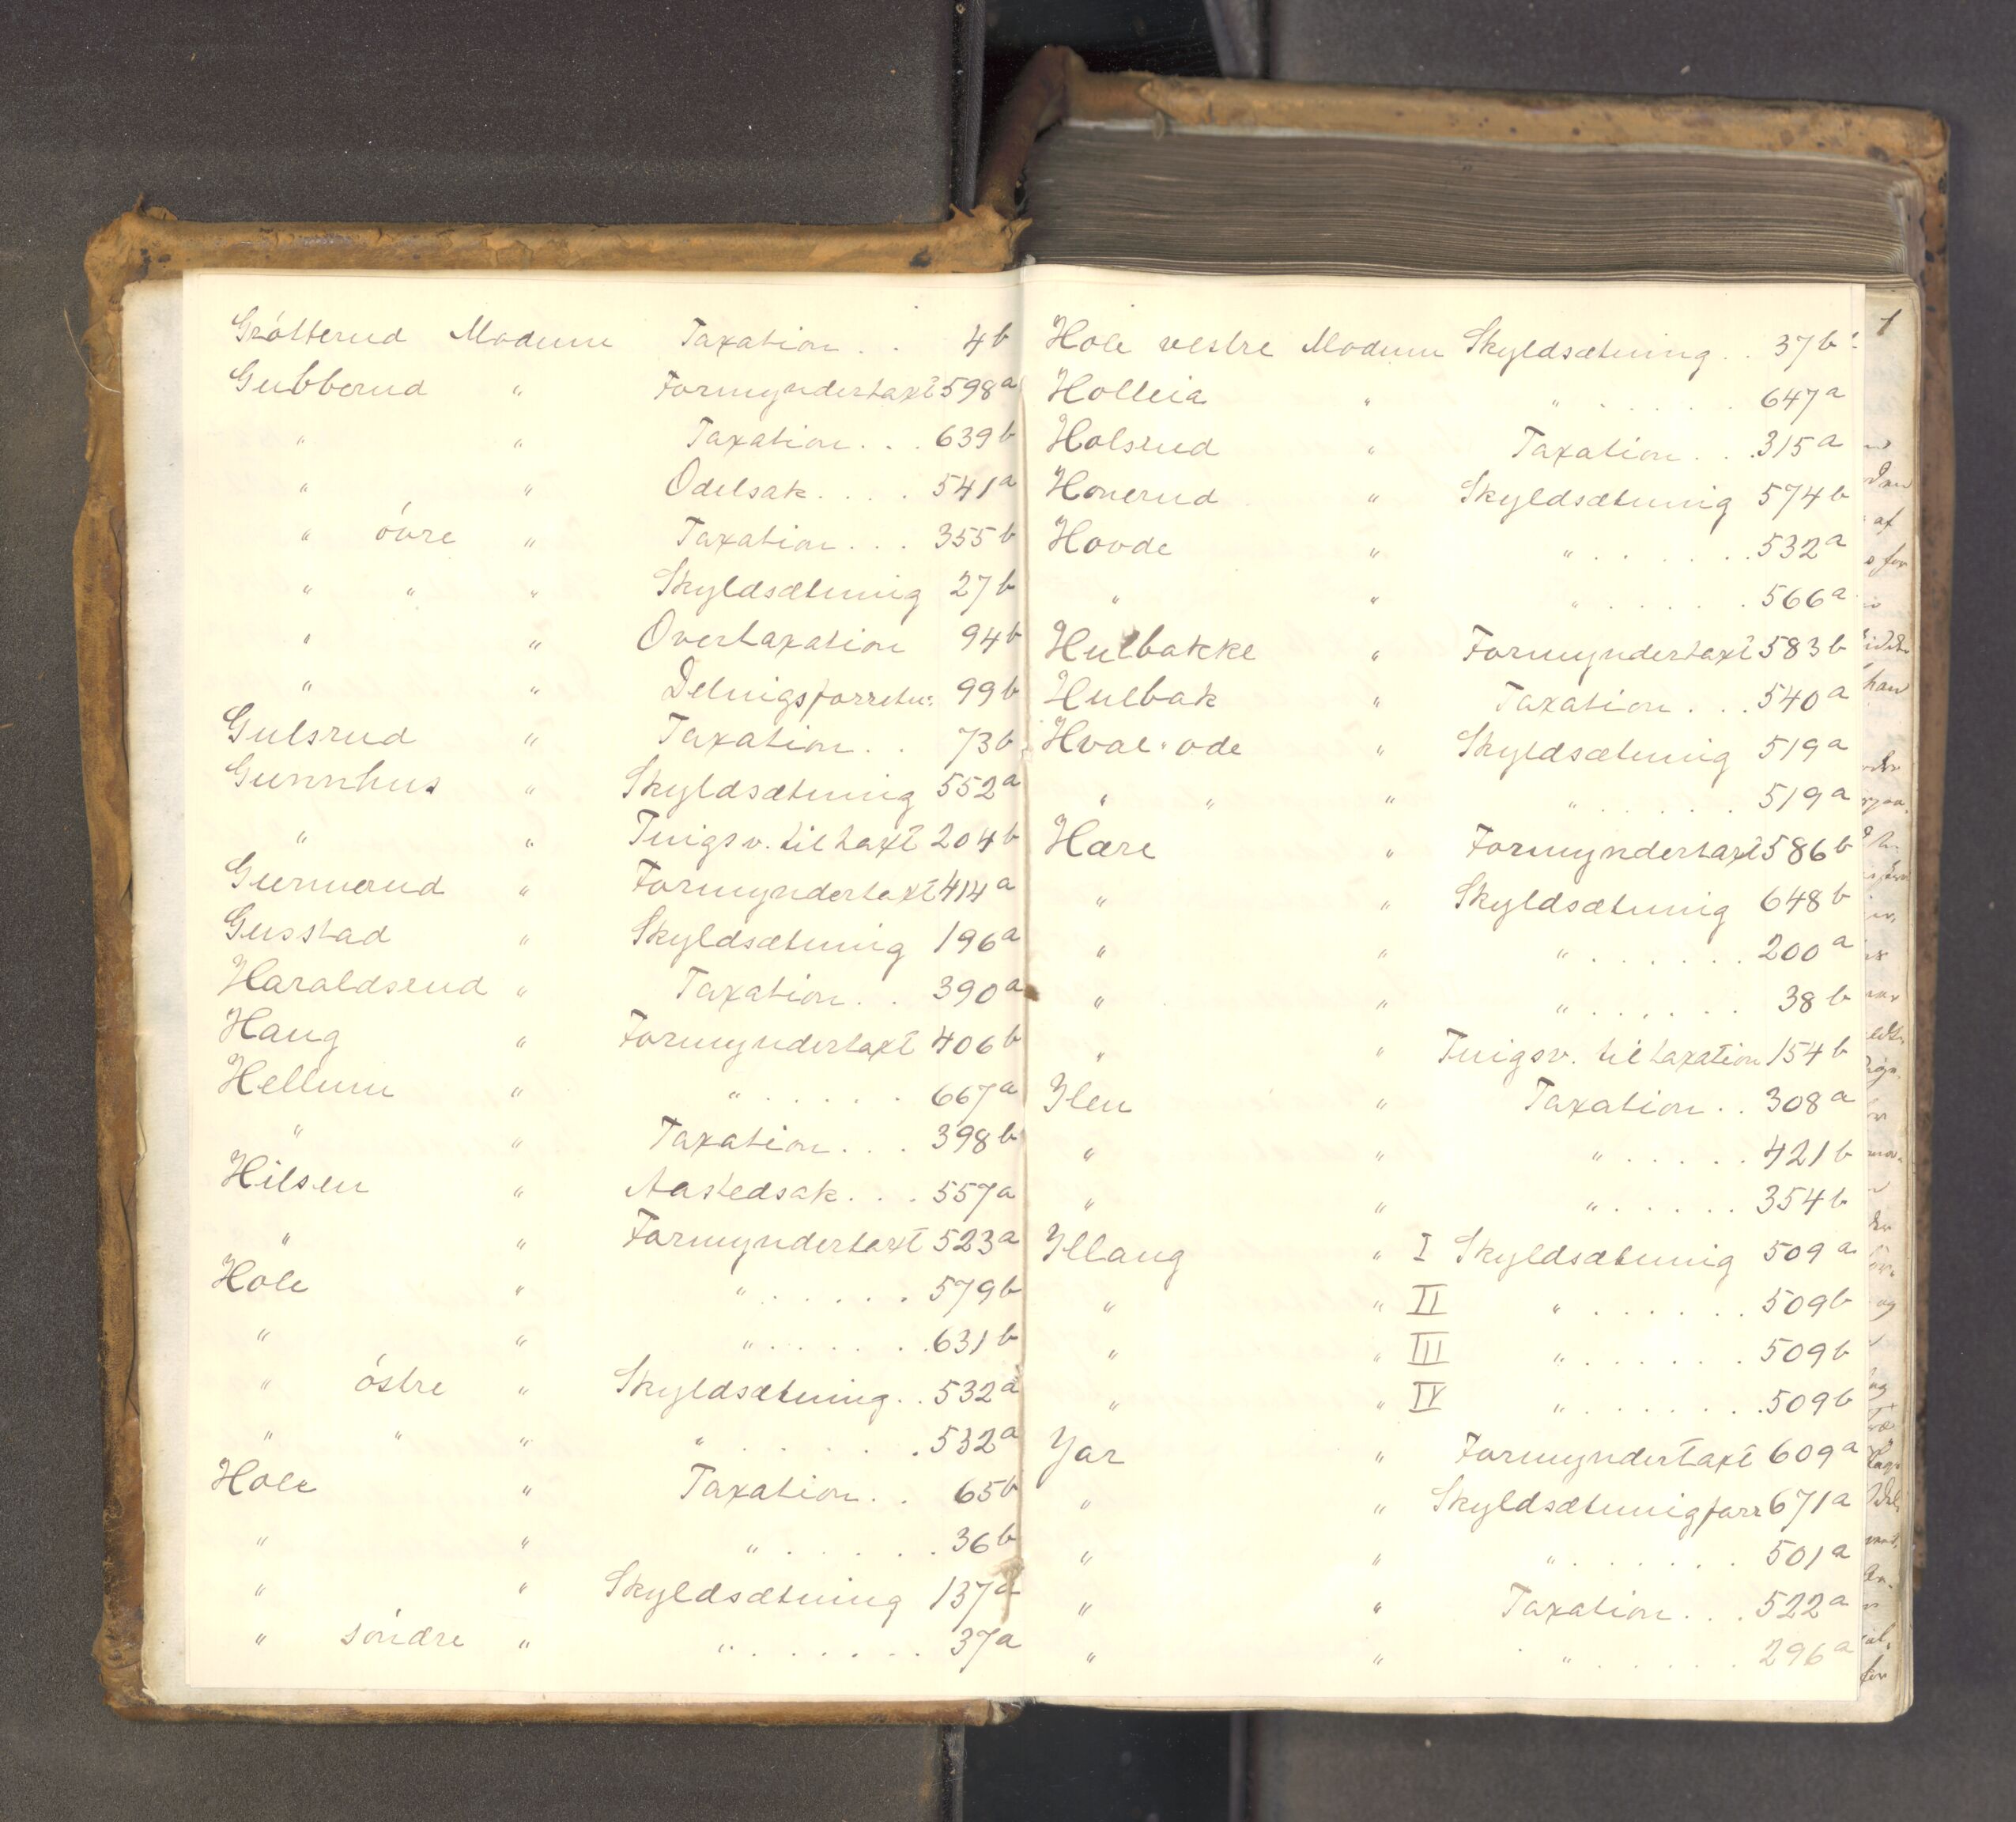 Grótterud Modum Taxation . . 4b
Gubberud " Formyndertaxt 598a
" " Taxation . . . 639b
" " Odelsak . . . . 541a
" óvre " Taxation . . . 355b
" " " Skyldsætning 27b
" " Overtaxation 94b
" " Delingsforretn: 99b
Gulsrud " Taxation . . 73b
Gunnhus " Skyldsætning 552a
" " Tingsv. til taxt 204b
Gunnerud " Formyndertaxt 414a
Gusstad " Skyldsætning 196a
Haraldsrud " Taxation . . 390a
Haug " Formyndertaxt 406b
Hellum " " . . . . . 667a
" " Taxation . . . 398b
Hilsen " Aastedsak . . . 557a
" " Formyndertaxt 523a
Hole " " . . . . . . 579b
" " " . . . . . . 631b
" óstre " Skyldsætning . . 532a
" " " " . . . . . 532a
Hole " Taxation . . 65b
" " " . . . . . . 36b
" " Skyldsætning 137a
" söndre " " . . . . . . 37a
Hole vestre Modum Skyldsætning . . 37b
Holleia " " . . . . . 647a
Holsrud " Taxation . . . 315a
Honerud " Skyldsætning 574b
Hovde " " . . . . . . 532a
" " " . . . . . . 566a
Hulbakke " Formyndertaxt 583b
Hulbak " Taxation . . . 540a
Hval öde " Skyldsætning 519a
" " " " . . . . . . 519a
Hære " Formyndertaxt 586b
" " Skyldsætning 648b
" " " . . . . . . . 200a
" " " . . . . . . 38b
" " Tingsv. til taxation 154b
Ilen " Taxation . . 308a
" " " . . . . . 421b
" " " . . . . . . 354b
Illaug " I Skyldsætning 509a
" " II " . . . . . . 509b
" " III " . . . . . . 509b
" " IV " . . . . . . . 509b
Jar " Formyndertaxt 609a
" " Skyldsætningforr 671a
" " " . . . . . . . 501a
" " Taxation . . . 522a
" " " . . . . . 296a
1
af
han
og
for